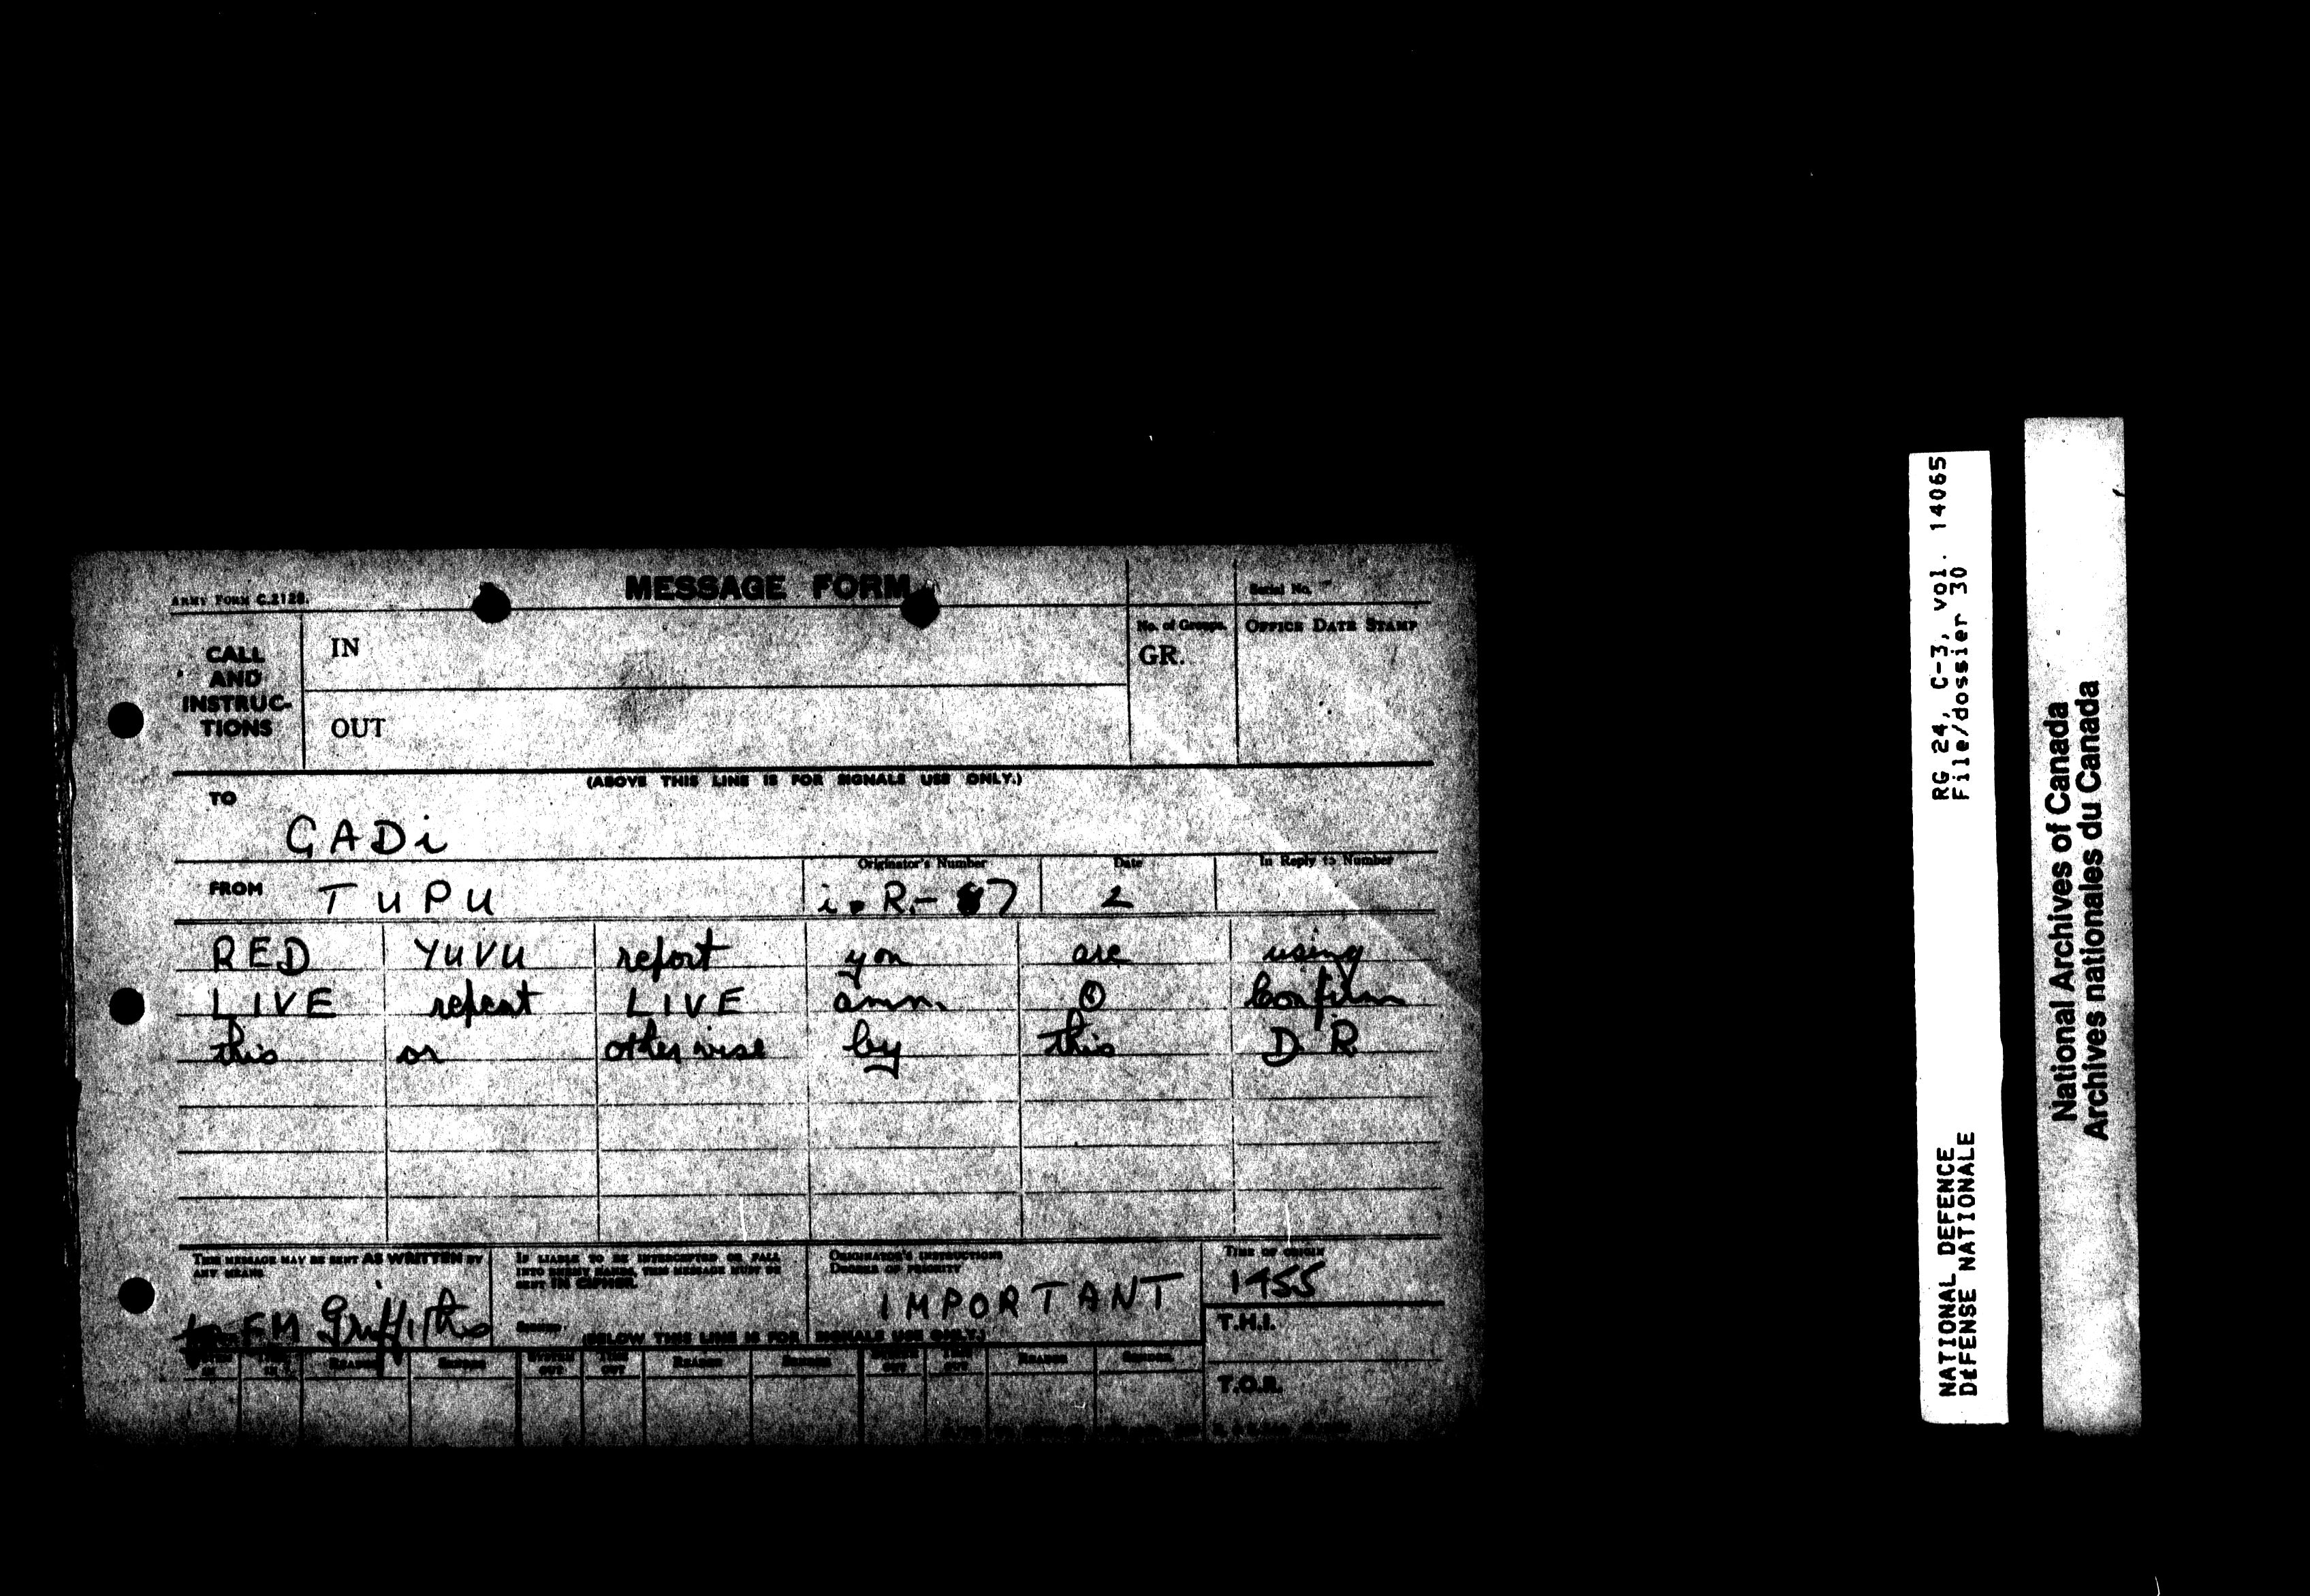 ARMY FORM C.2128.
MESSAGE FORM
Serial No.
CALL AND INSTRUC-TIONS
IN
OUT
No. of Groups.
GR.
OFFICE DATE STAMP
(ABOVE THIS LINE IS FOR SIGNALS USE ONLY.)
TO
GADi
FROM TUPU
Originator's Number
i.R.- 87
Date
2
In Reply to Number
RED YUVU report you are using
LIVE repeat LIVE amm. Confirm
this or otherwise by this DR
THIS MESSAGE MAY BE SENT AS WRITTEN BY ANY MEANS
EM Griffiths
IF LIABLE TO BE INTERCEPTED OR FALL INTO ENEMY HANDS, THIS MESSAGE MUST BE SENT IN CIPHER.
ORIGINATOR'S INSTRUCTIONS
DEGREE OF PRIORITY
IMPORTANT
TIME OF ORIGIN
1455
T.H.I.
T.O.R.
(BELOW THIS LINE IS FOR SIGNALS USE ONLY.)
READER SENDER OUT OUT READER SENDER OUT OUT READER SENDER
RG 24, C-3, vol. 14065
File/dossier 30
NATIONAL DEFENCE
DÉFENSE NATIONALE
National Archives of Canada
Archives nationales du Canada